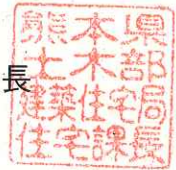 長
熊本県
土木部
建築住宅局
住宅課長